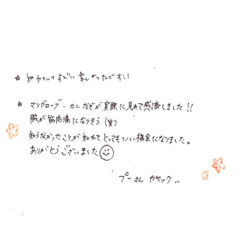 ★ めちゃいこ すごい 楽しかったです!
★ マングローブ、カニなどが実際に見れて感激しました!!
腕が筋肉痛になりそう(笑)
知らなかったことが知れてとってもいい機会になりました。
ありがとうございました
プーさん カヤック…